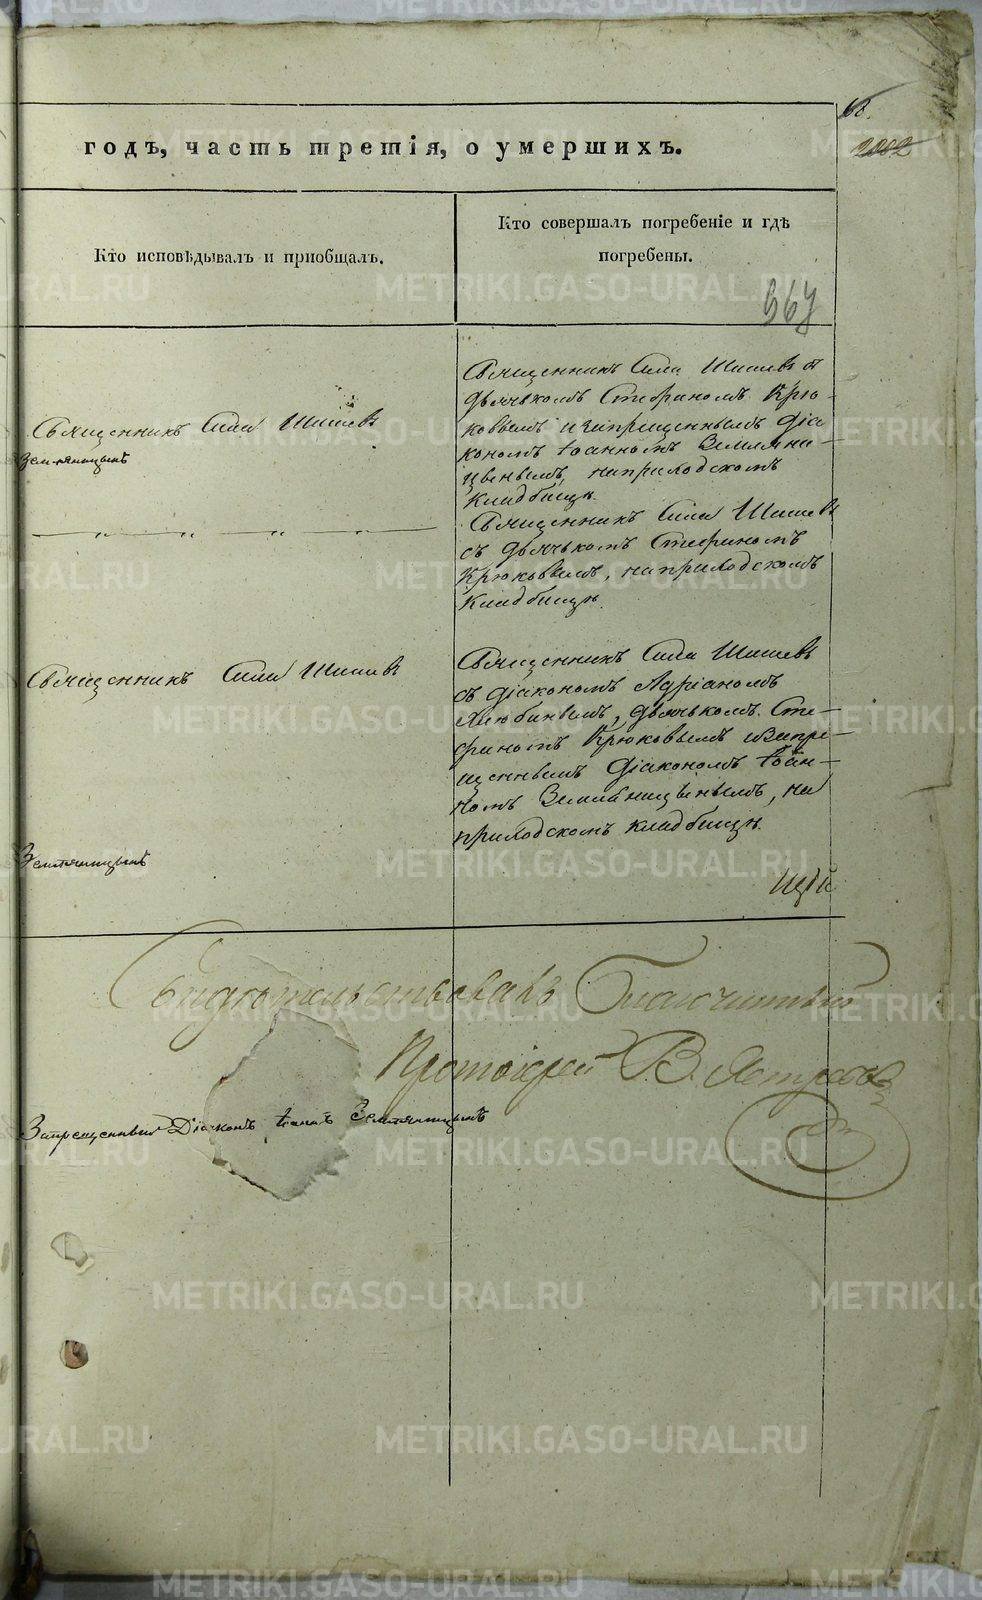 68.
2002
годъ, часть третія, о умершихъ.
Кто исповѣдывалъ и пріобщалъ.
Кто совершалъ погребеніе и гдѣ
погребены.
567
Священникъ Сила Шишевъ
Земляницынъ
Священникъ Сила Шишевъ съ
дьячькомъ Стефаномъ Крю-
ковымъ и запрещеннымъ діа
кономъ Іоанномъ Земляни-
цынымъ, на приходскомъ
кладбищѣ.
— „ — „ — „ — „ —
Священникъ Сила Шишевъ
съ дьячькомъ Стефаномъ
Крюковымъ, на приходскомъ
кладбищѣ.
Священникъ Сила Шишевъ
Священникъ Сила Шишевъ
съ діакономъ Адріаномъ
Любинымъ, дьячькомъ Сте-
фаномъ Крюковымъ и запре-
щеннымъ діакономъ Іоан-
номъ Земляницынымъ, на
приходскомъ кладбищѣ.
Земляницынъ
Свидѣтельствовалъ Благочинный
Протоіерей В. Ястребовъ
Запрещенный Діаконъ Іоанъ Земляницынъ
METRIKI.GASO-URAL.RU